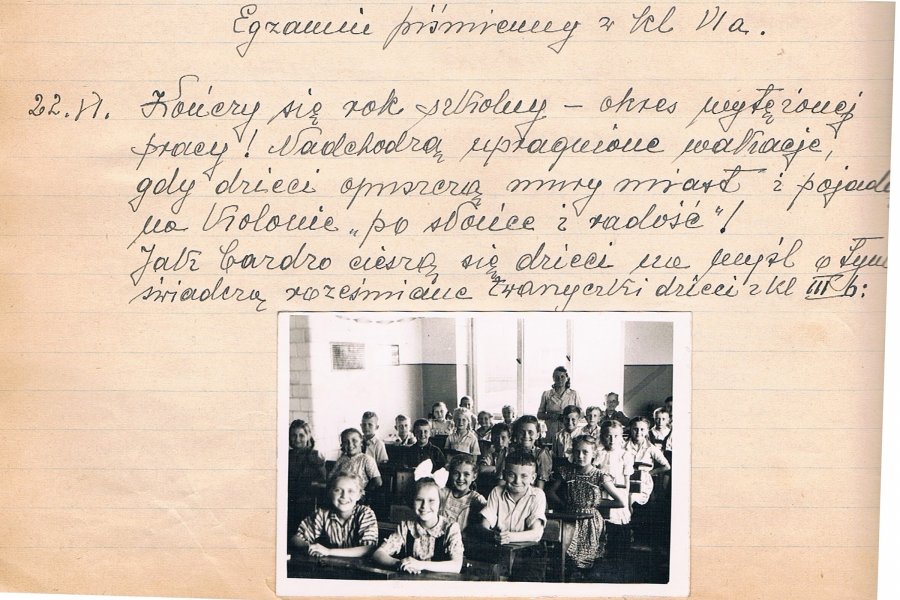 Egzamin piśmienny w kl VI a.
22.VI. Kończy się rok szkolny – okres wytężonej
pracy! Nadchodzą upragnione wakacje,
gdy dzieci opuszczą mury miast i pojadą
na kolonie „po słońce i radość"!
Jak bardzo cieszą się dzieci na myśl o tym
świadczą roześmiane twarzyczki dzieci z kl III b: